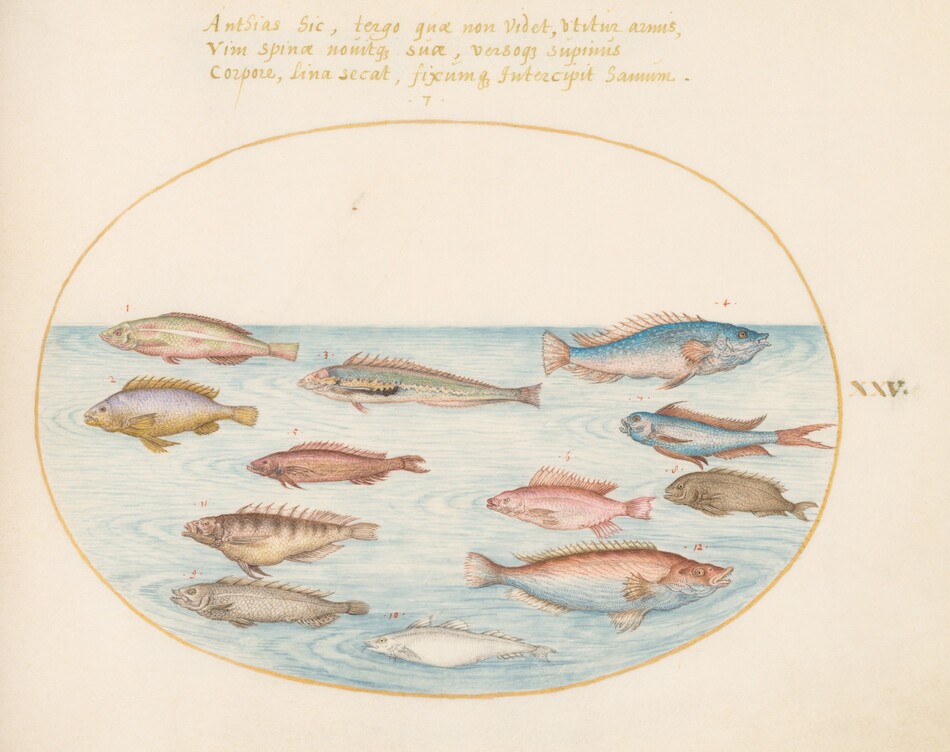 Anthias hic, tergo quæ non videt, utitur armis,
Vim spinæ novitq; suæ, versoq; supinus
Corpore, lina secat, fixumq; Intercipit hamum.
·7·
1
·4·
·3·
2
·7·
5
·6·
·8·
11
·12·
·9·
·10·
XXV.